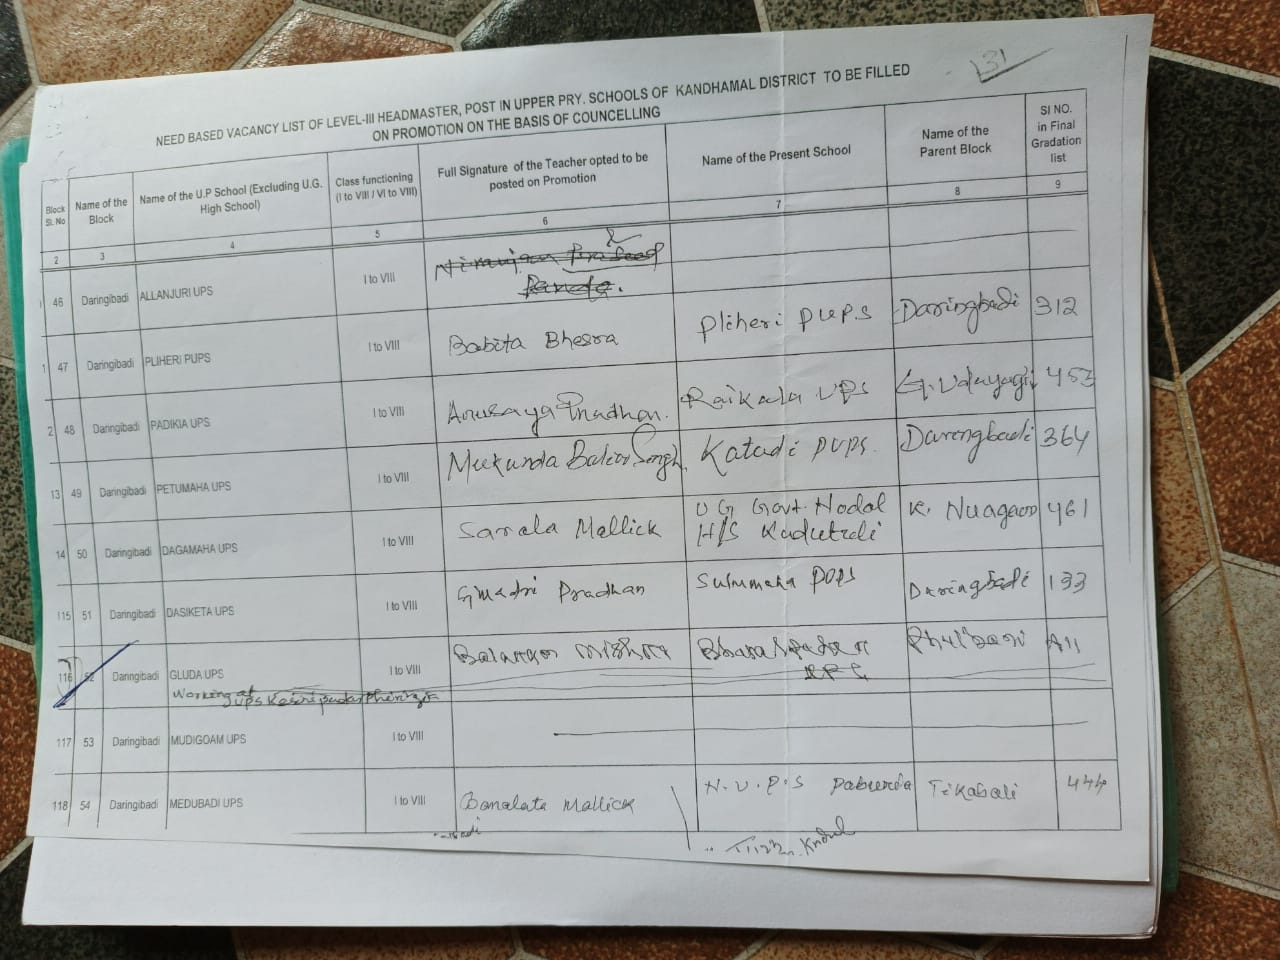 31
NEED BASED VACANCY LIST OF LEVEL-III HEADMASTER, POST IN UPPER PRY. SCHOOLS OF KANDHAMAL DISTRICT TO BE FILLED
ON PROMOTION ON THE BASIS OF COUNCELLING
Block Sl. No | Name of the Block | Name of the U.P School (Excluding U.G. High School) | Class functioning (I to VIII / VI to VIII) | Full Signature of the Teacher opted to be posted on Promotion | Name of the Present School | Name of the Parent Block | Sl NO. in Final Gradation list
2 | 3 | 4 | 5 | 6 | 7 | 8 | 9
46 | Daringibadi | ALLANJURI UPS | I to VIII | Niranjan Prasad Panda.
47 | Daringibadi | PLIHERI PUPS | I to VIII | Babita Bhesra | Pliheri PUPS | Daringbadi | 312
48 | Daringibadi | PADIKIA UPS | I to VIII | Anusaya Pradhan. | Raikala UPS | G. Udayagiri | 453
13 | 49 | Daringibadi | PETUMAHA UPS | I to VIII | Mukunda Singh | Katadi PUPS. | Daringbadi | 364
14 | 50 | Daringibadi | DAGAMAHA UPS | I to VIII | Sarala Mallick | U G Govt. Nodal H/S | K. Nuagaon | 461
115 | 51 | Daringibadi | DASIKETA UPS | I to VIII | Pradhan | PUPS | Daringbadi | 133
116 | 52 | Daringibadi | GLUDA UPS | I to VIII | Balaram Mishra | UPS | Phulbani | A11
Working at UPS Phiringia
117 | 53 | Daringibadi | MUDIGOAM UPS | I to VIII
118 | 54 | Daringibadi | MEDUBADI UPS | I to VIII | Banalata Mallick | N.U.P.S Paburia | Tikabali | 444